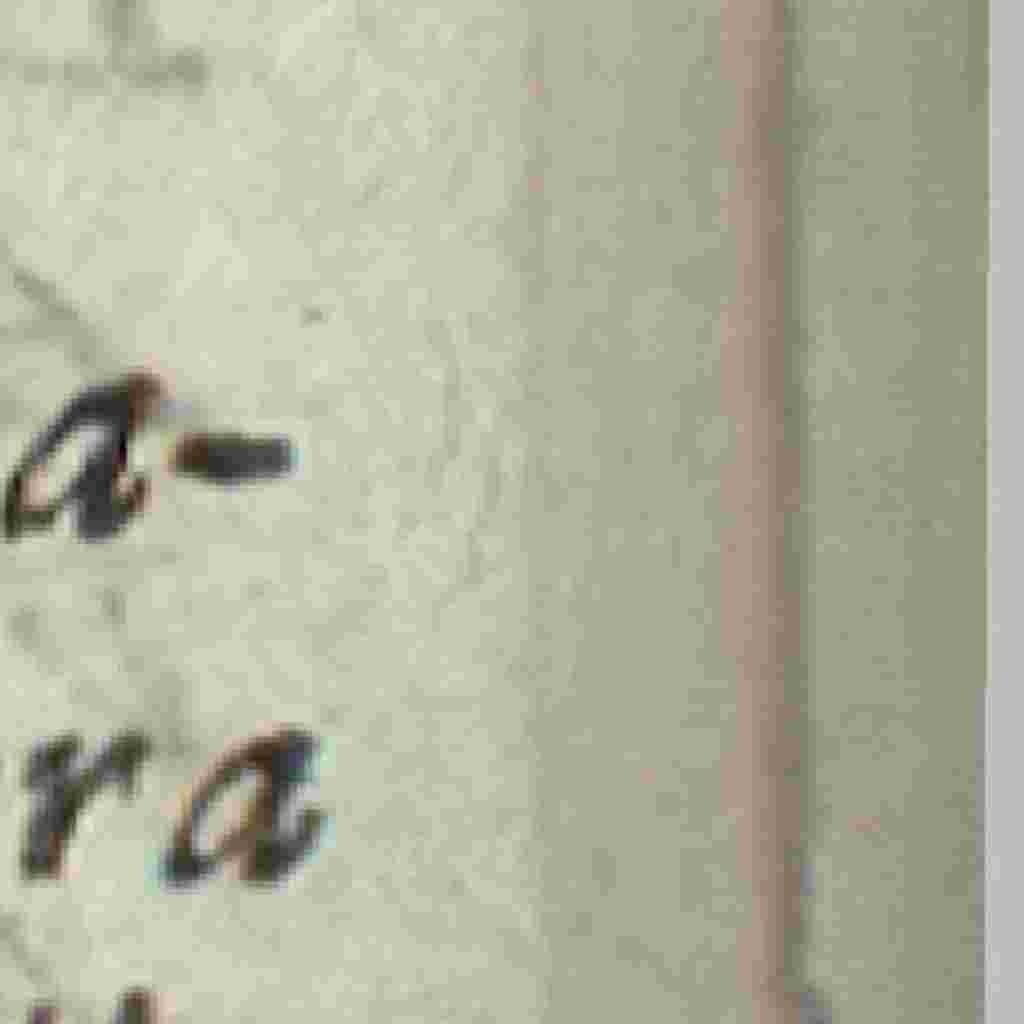 a-
ra